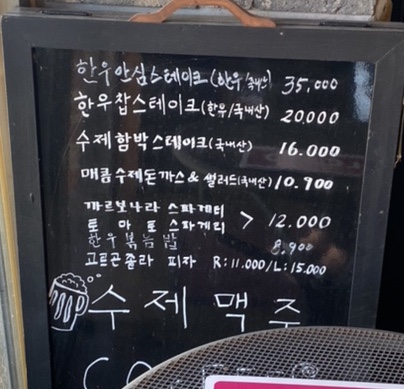 한우안심스테이크(한우/국내산) 35,000
한우찹스테이크(한우/국내산) 20,000
수제함박스테이크(국내산) 16.000
매콤수제돈까스 & 샐러드(국내산) 10.900
까르보나라 스파게티
토마토스파게티 > 12.000
한우볶음밥 8,900
고르곤졸라 피자 R:11.000/L:15.000
수제맥주